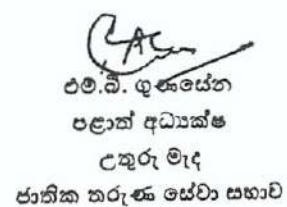 එම්.බී. ගුණසේන
පළාත් අධ්‍යක්ෂ
උතුරු මැද
ජාතික තරුණ සේවා සභාව